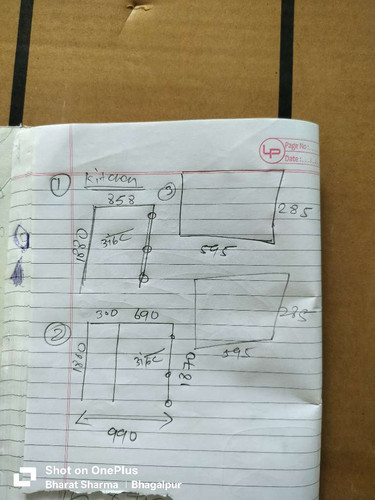 LP Page No.:
Date:
① Kitchen
858
③
285
595
1880
② 300 690
285
595
1880
1870
990
Shot on OnePlus
Bharat Sharma | Bhagalpur